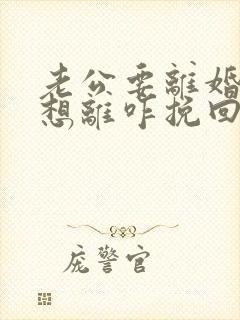 老公要離婚
想離咋挽回
庞警官